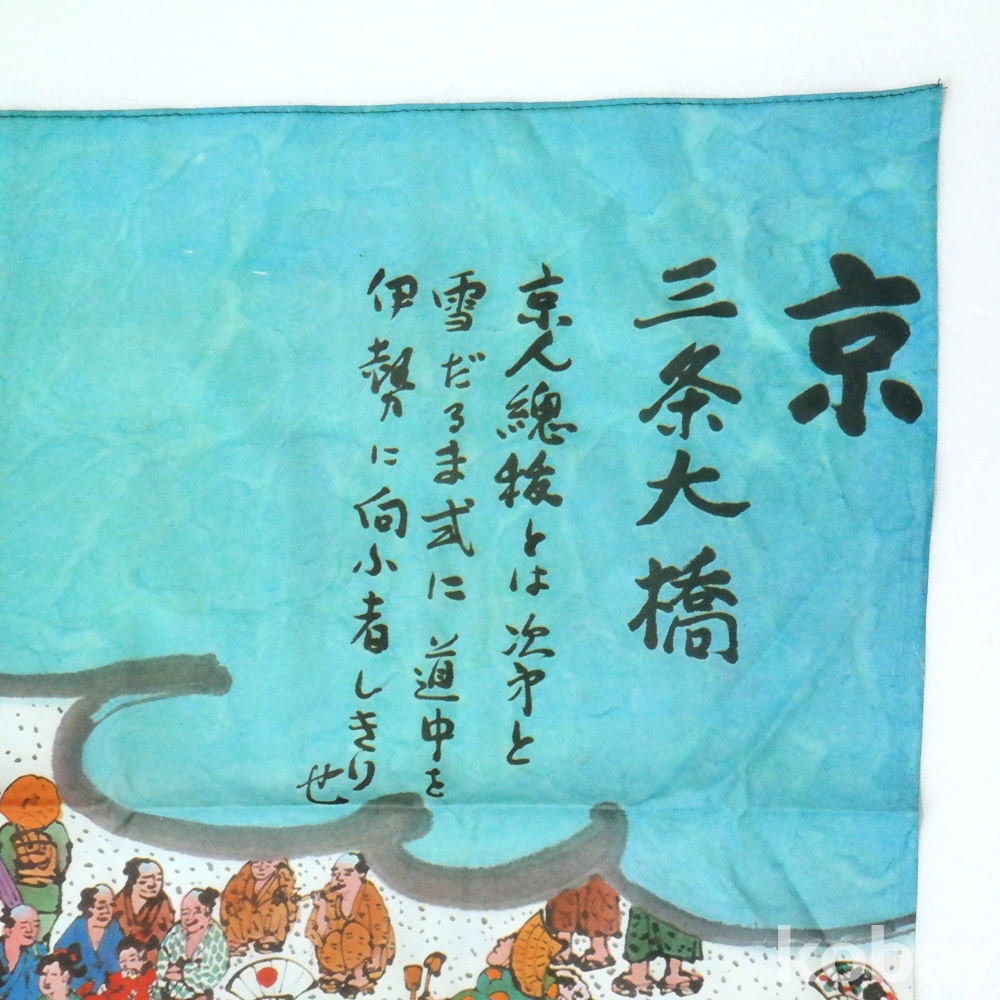 京
三条大橋
京人總とは次第と
雪だるま式に道中を
伊勢に向ふ者しきり
也
koba